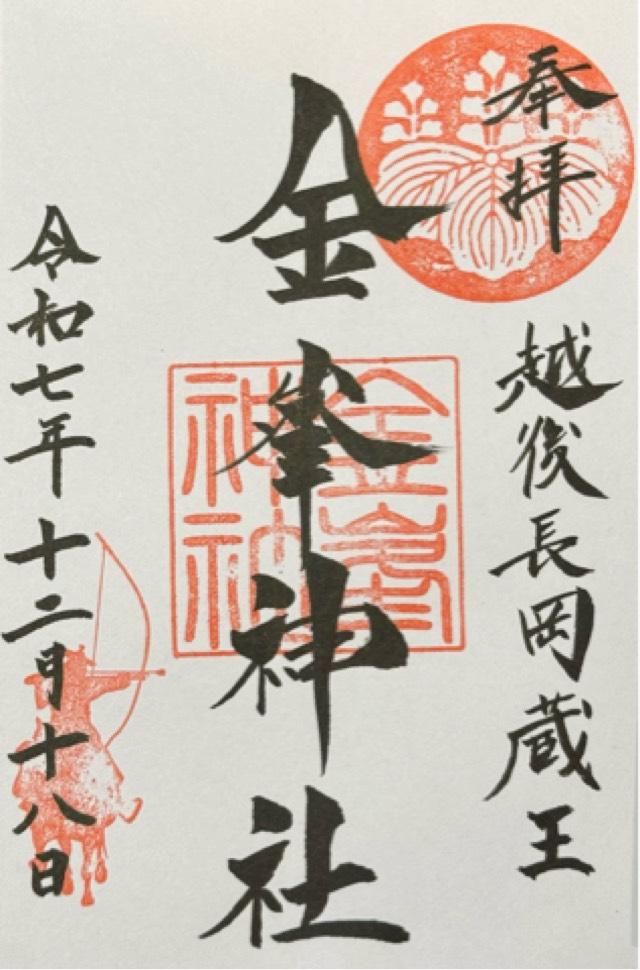 奉拝
越後長岡蔵王
金峯神社
令和七年十二月十八日